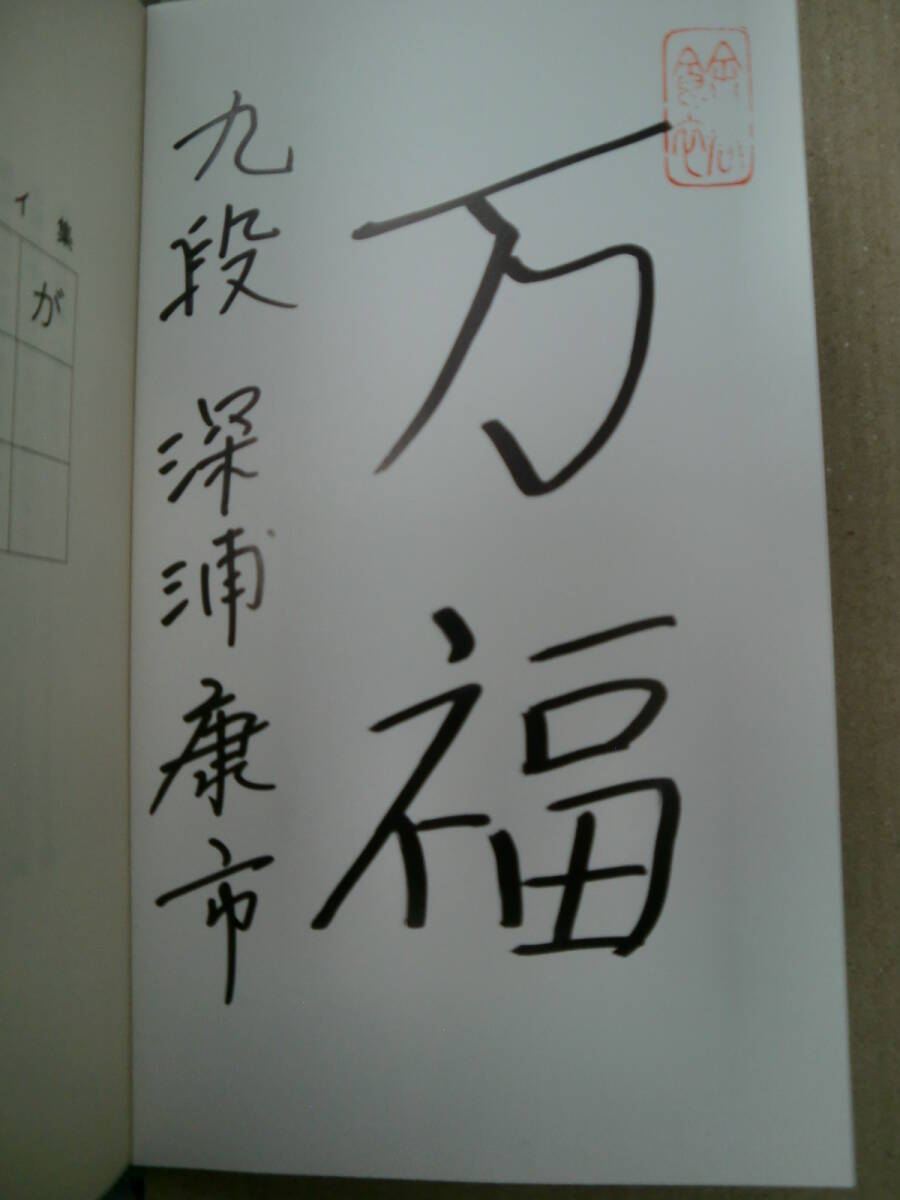 万福
九段 深浦康市
イ集
が